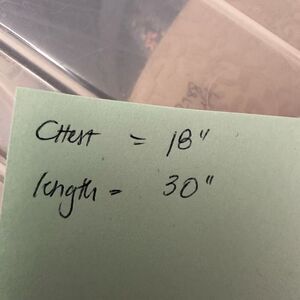 Chest = 18"
length = 30"